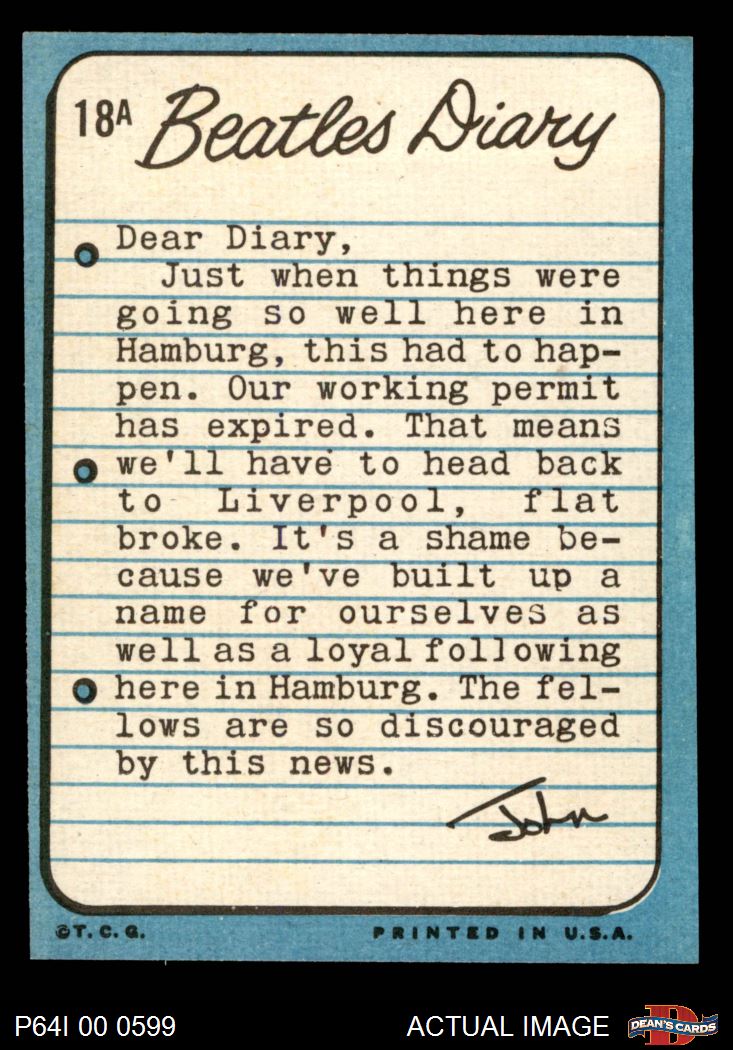 18A Beatles Diary
Dear Diary,
Just when things were
going so well here in
Hamburg, this had to hap-
pen. Our working permit
has expired. That means
we'll have to head back
to Liverpool, flat
broke. It's a shame be-
cause we've built up a
name for ourselves as
well as a loyal following
here in Hamburg. The fel-
lows are so discouraged
by this news.
John
©T.C.G. PRINTED IN U.S.A.
P64I 00 0599 ACTUAL IMAGE DEAN'S CARDS